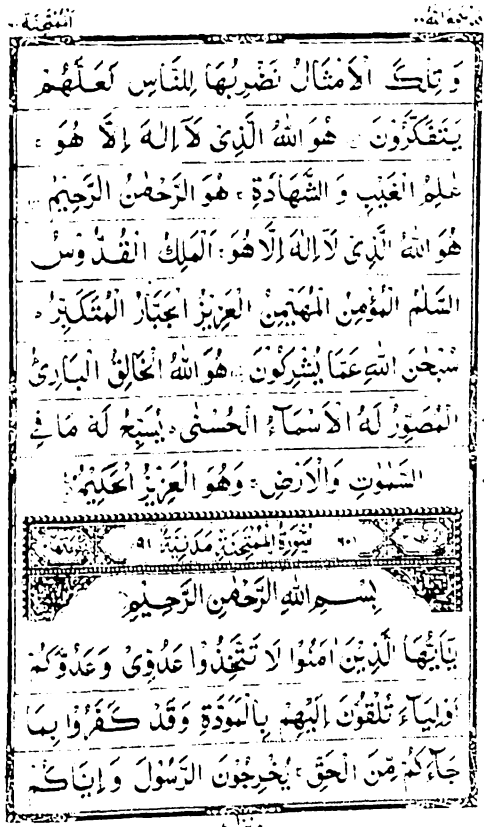 قد سمع الله ٢٨ الممتحنة ٦٠
وَ تِلْكَ الْاَمْثَالُ نَضْرِبُهَا لِلنَّاسِ لَعَلَّهُمْ
يَتَفَكَّرُوْنَ هُوَ اللّٰهُ الَّذِىْ لَآ اِلٰهَ اِلَّا هُوَ
عٰلِمُ الْغَيْبِ وَ الشَّهَادَةِ هُوَ الرَّحْمٰنُ الرَّحِيْمُ
هُوَ اللّٰهُ الَّذِىْ لَآ اِلٰهَ اِلَّا هُوَ اَلْمَلِكُ الْقُدُّوْسُ
السَّلٰمُ الْمُؤْمِنُ الْمُهَيْمِنُ الْعَزِيْزُ الْجَبَّارُ الْمُتَكَبِّرُ
سُبْحٰنَ اللّٰهِ عَمَّا يُشْرِكُوْنَ هُوَ اللّٰهُ الْخَالِقُ الْبَارِئُ
الْمُصَوِّرُ لَهُ الْاَسْمَآءُ الْحُسْنٰى يُسَبِّحُ لَهٗ مَا فِى
السَّمٰوٰتِ وَالْاَرْضِ وَهُوَ الْعَزِيْزُ الْحَكِيْمُ
سُوْرَةُ الْمُمْتَحِنَةِ مَدَنِيَّةٌ
بِسْمِ اللّٰهِ الرَّحْمٰنِ الرَّحِيْمِ
يٰٓاَيُّهَا الَّذِيْنَ اٰمَنُوْا لَا تَتَّخِذُوْا عَدُوِّىْ وَعَدُوَّكُمْ
اَوْلِيَآءَ تُلْقُوْنَ اِلَيْهِمْ بِالْمَوَدَّةِ وَقَدْ كَفَرُوْا بِمَا
جَآءَكُمْ مِّنَ الْحَقِّ يُخْرِجُوْنَ الرَّسُوْلَ وَ اِيَّاكُمْ